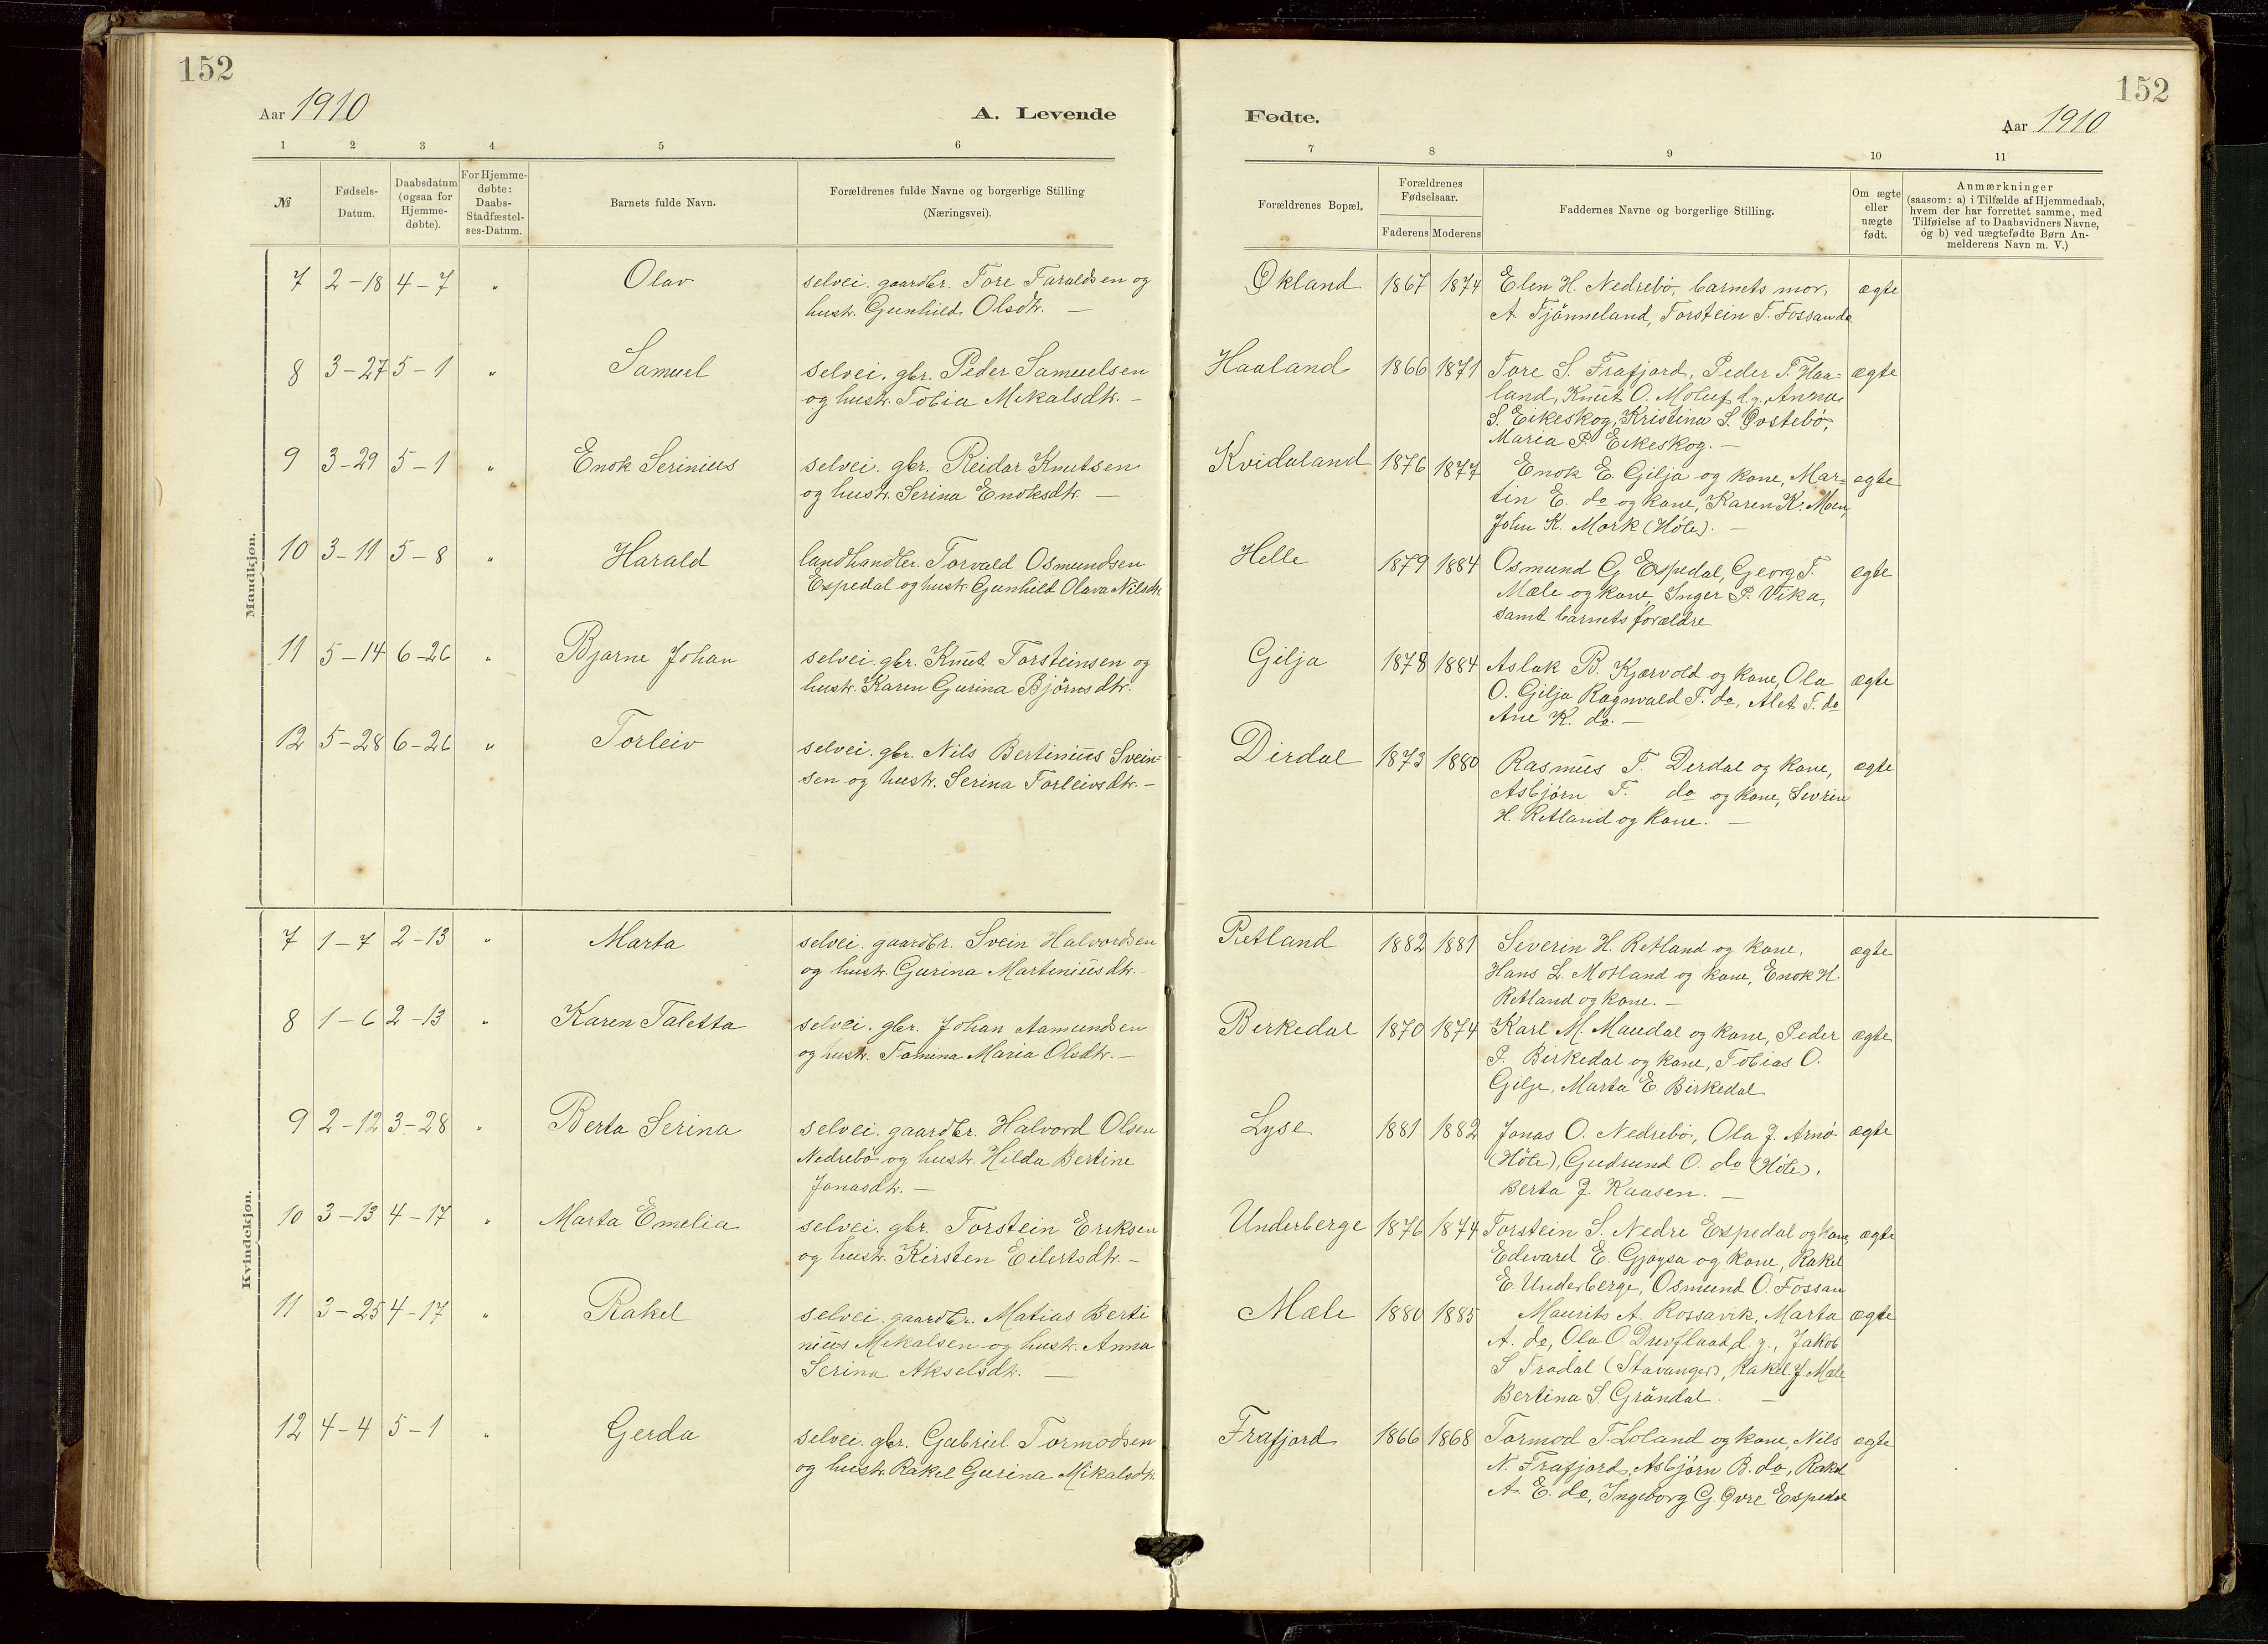 152
Aar 1910
A. Levende
1 2 3 4 5 6
№
Fødsels-
Datum.
Daabsdatum
(ogsaa for
Hjemme-
døbte).
For Hjemme-
døbte:
Daabs-
Stadfæstel-
ses-Datum.
Barnets fulde Navn.
Forældrenes fulde Navne og borgerlige Stilling
(Næringsvei).
Mandkjøn.
7 2-18 4-7 " Olav selvei. gaardbr. Tore Taraldsen og
hustr. Gunhild Olsdtr. —
8 3-27 5-1 " Samuel selvei. gbr. Peder Samuelsen
og hustr. Tobia Mikalsdtr. —
9 3-29 5-1 " Enok Serinius selvei. gbr. Reidar Knutsen
og hustr. Serina Enoksdtr. —
10 3-11 5-8 " Harald landhandler. Torvald Osmundsen
Espedal og hustr. Gunhild Olava Nilsdtr.
11 5-14 6-26 " Bjarne Johan selvei. gbr. Knut Torsteinsen og
hustr. Karen Gurina Bjørnsdtr.
12 5-28 6-26 " Torleiv selvei. gbr. Nils Bertinius Svein=
sen og hustr. Serina Torleivsdtr. —
Kvindekjøn.
7 1-7 2-13 " Marta selvei. gaardbr. Svein Halvordsen
og hustr. Gurina Martiniusdtr. —
8 1-6 2-13 " Karen Taletta selvei. gbr. Johan Aamundsen
og hustr. Tomina Maria Olsdtr. —
9 2-12 3-28 " Berta Serina selvei. gaardbr. Halvord Olsen
Nedrebø og hustr. Hilda Bertine
Jonasdtr. —
10 3-13 4-17 " Marta Emelia selvei. gbr. Torstein Eriksen
og hustr. Kirsten Eilertsdtr. —
11 3-25 4-17 " Rakel selvei. gaardbr. Matias Berti
nius Mikalsen og hustr. Anna
Serina Akselsdtr. —
12 4-4 5-1 " Gerda selvei. gbr. Gabriel Tormodsen
og hustr. Rakel Gurina Mikalsdtr.
152
Fødte.
Aar 1910
7 8 9 10 11
Forældrenes Bopæl.
Forældrenes
Fødselsaar.
Faderens Moderens
Faddernes Navne og borgerlige Stilling.
Om ægte
eller
uægte
født.
Anmærkninger
(saasom: a) i Tilfælde af Hjemmedaab,
hvem der har forrettet samme, med
Tilføielse af to Daabsvidners Navne,
og b) ved uægtefødte Børn An-
melderens Navn m. V.)
Økland 1867 1874 Elen H. Nedrebø, barnets mor, ægte
A Tjønneland, Torstein T. Fossan do
Haaland 1866 1871 Tore S. Frafjord, Peder T. Haa= ægte
land, Knut O. Moluf d.y., Anna
S. Eikeskog, Kristina S. Øvstebø,
Maria P. Eikeskog. —
Kvidaland 1876 1877 Enok E. Gilja og kone, Mar= ægte
tin E. do og kone, Karen K. Moen,
John K. Mork (Høle). —
Helle 1879 1884 Osmund G Espedal, Georg T. ægte
Mæle og kone, Inger P. Vika,
samt barnets forældre
Gilja 1878 1884 Aslak B. Kjærvold og kone, Ola ægte
O. Gilja Ragnvald T. do, Alet T. do
Ane K. do. —
Dirdal 1873 1880 Rasmus T. Derdal og kone, ægte
Asbjørn T. do og kone, Sivrin
H. Retland og kone. —
Retland 1882 1881 Severin H. Retland og kone, ægte
Hans L. Motland og kone, Enok H.
Retland og kone. —
Birkedal 1870 1874 Karl M. Maudal og kone, Peder ægte
P. Birkedal og kone, Tobias O.
Gilje, Marta E. Birkedal
Lyse 1881 1882 Jonas O. Nedrebø, Ola J. Arnø ægte
(Høle), Gudrund O. do (Høle),
Berta J. Kaasen. —
Underberge 1876 1874 Torstein S. Nedre Espedal og kone, ægte
Edevard E. Gjøysa og kone, Rakel
E. Underberge, Osmund O. Fossan
Mæle 1880 1885 Maurits A. Rossavik, Marta ægte
A. do, Ola O Duoflaat d.y., Jakob
S Tradal (Stavanger), Rakel J. Mæle
Bertina S. Grändal. —
Frafjord 1866 1868 Tormod T. Loland og kone, Nils ægte
N. Frafjord, Asbjørn B. do, Rakel
A. E. do, Ingeborg G. Øvre Espedal